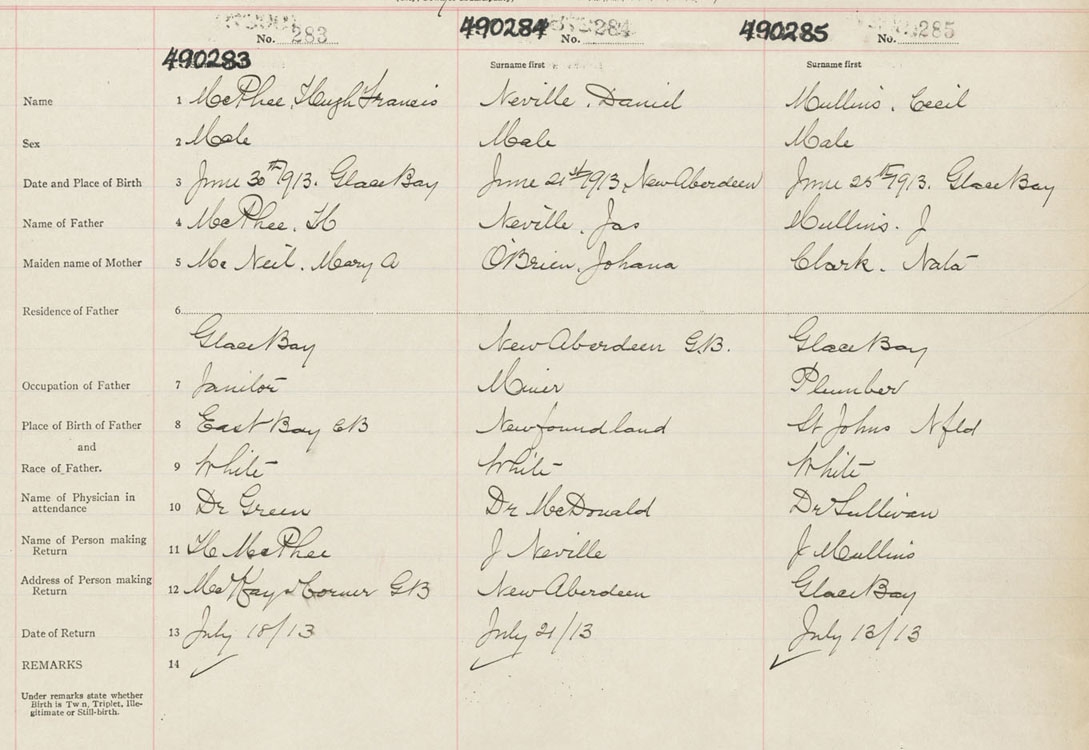 No. 283 490284 No. 284 490285 No. 285
490283 Surname first Surname first
Name 1 McPhee, Hugh Francis Neville, Daniel Mullins, Cecil
Sex 2 Male Male Male
Date and Place of Birth 3 June 30th 1913. Glace Bay June 21st 1913, New Aberdeen June 25th 1913. Glace Bay
Name of Father 4 McPhee, H Neville, Jas Mullins. J
Maiden name of Mother 5 Mc Neil. Mary A O'Brien, Johana Clark. Nata
Residence of Father 6
Glace Bay New Aberdeen G.B. Glace Bay
Occupation of Father 7 Janitor Miner Plumber
Place of Birth of Father 8 East Bay CB Newfoundland St Johns Nfld
and
Race of Father. 9 White White White
Name of Physician in
attendance 10 Dr Green Dr McDonald Dr Sullivan
Name of Person making
Return 11 H McPhee J Neville J Mullins
Address of Person making
Return 12 McKays Corner GB New Aberdeen Glace Bay
Date of Return 13 July 18/13 July 21/13 July 12/13
REMARKS 14
Under remarks state whether
Birth is Twin, Triplet, Ille-
gitimate or Still-birth.